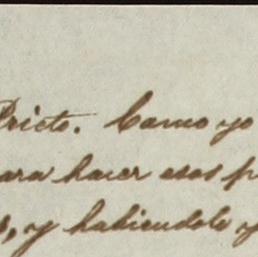 Prieto. Como yo
para hacer esos p
, y habiendolo y